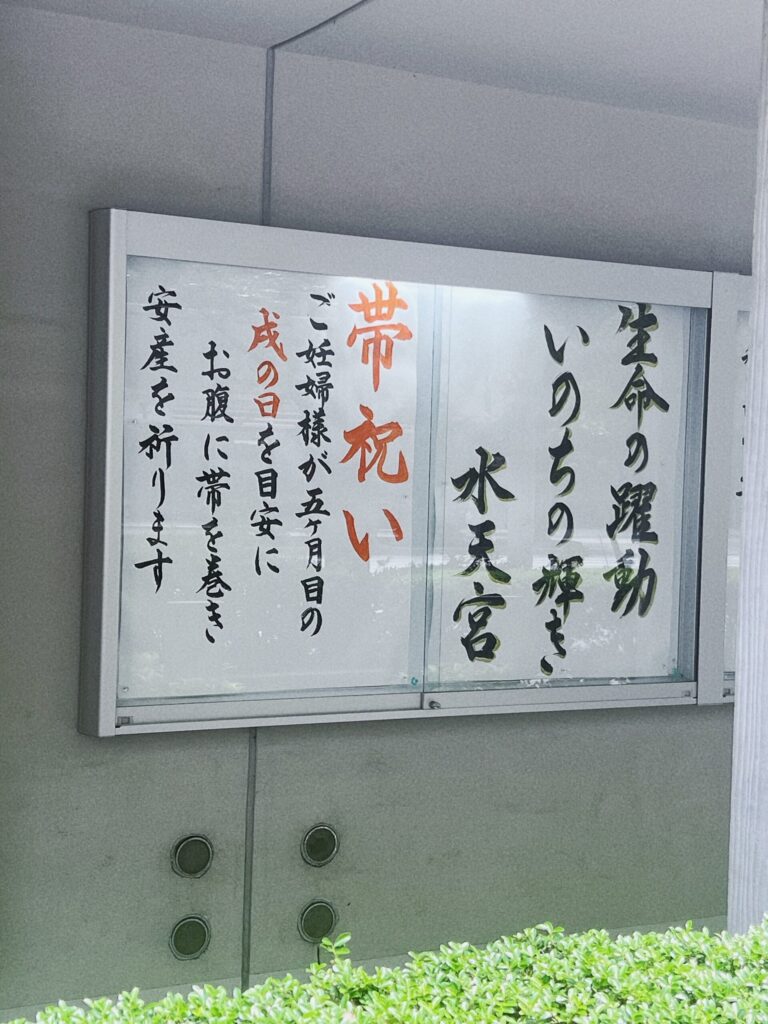 生命の躍動
いのちの輝き
水天宮
帯祝い
ご妊婦様が五ヶ月目の
戌の日を目安に
お腹に帯を巻き
安産を祈ります